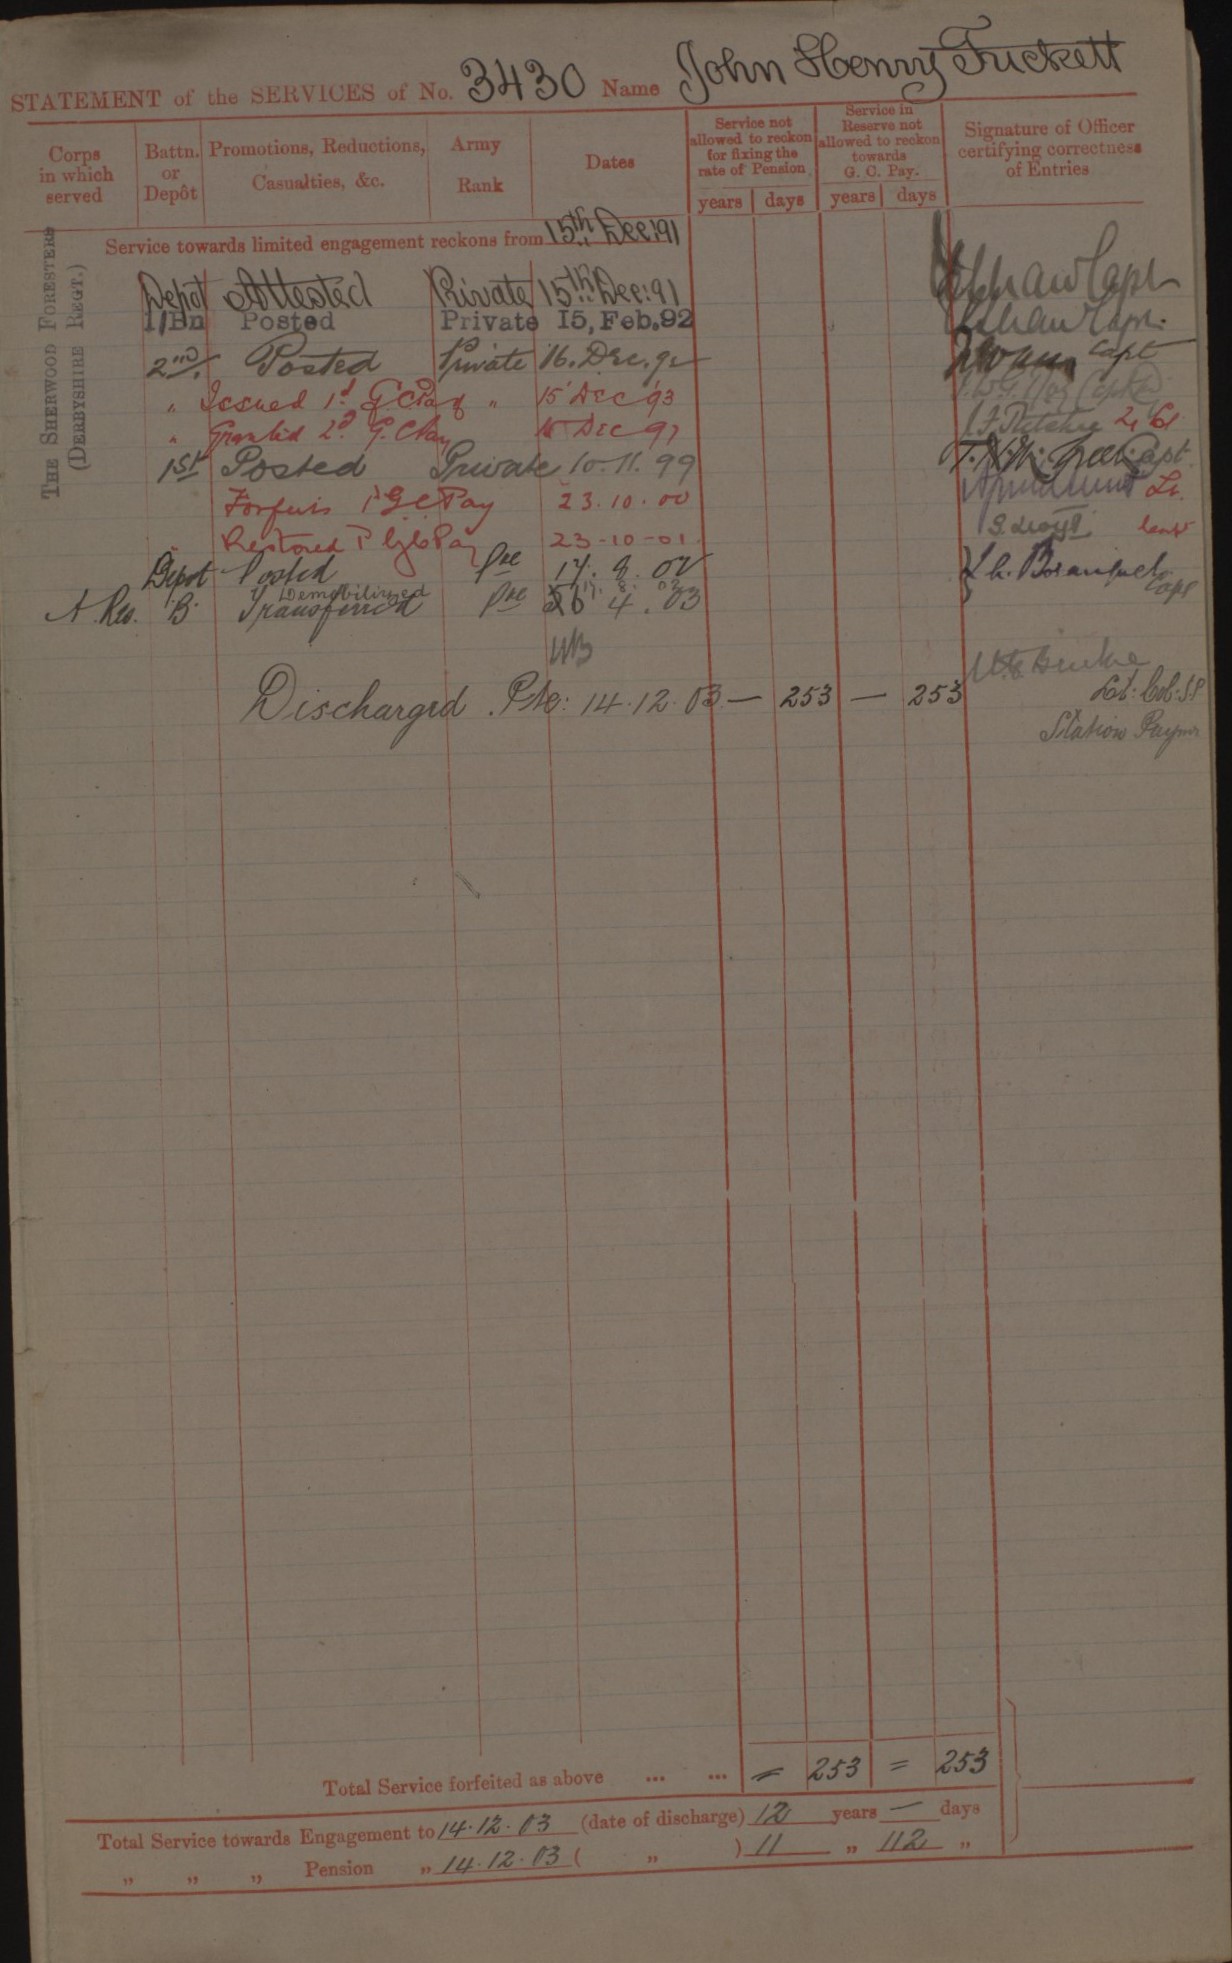 STATEMENT of the SERVICES of No. 3430 Name John Henry Tuckett
Corps in which served
Battn. or Depôt
Promotions, Reductions, Casualties, &c.
Army Rank
Dates
Service not allowed to reckon for fixing the rate of Pension
years days
Service in Reserve not allowed to reckon towards G. C. Pay.
years days
Signature of Officer certifying correctness of Entries
THE SHERWOOD FORESTERS
(DERBYSHIRE REGT.)
Service towards limited engagement reckons from 15th Dec: 91
Depot Attested Private 15th Dec: 91 Capt
1/Bn Posted Private 15, Feb. 92 Capt.
2nd. Posted Private 16. Dec. 92 Capt
" Issued 1st G.C Pay " 15 Dec 93
" Granted 2d G. C Pay 15 Dec 97 Lt
1st Posted Private 10. 11. 99 Capt.
Forfeits 1 GC Pay 23. 10. 00 Lt.
Restored 1 G C Pay 23-10-01
Depot Posted Pte 17. 8. 02
A. Res. B. Demobilized Transferred Pte 4. 03 Capt
Discharged Pte: 14. 12. 03 — 253 — 253 Lt: Col: S.P
Station Paymr
Total Service forfeited as above ... ... = 253 = 253
Total Service towards Engagement to 14.12.03 (date of discharge) 12 years — days
" " " Pension " 14.12.03 ( " ) 11 " 112 "